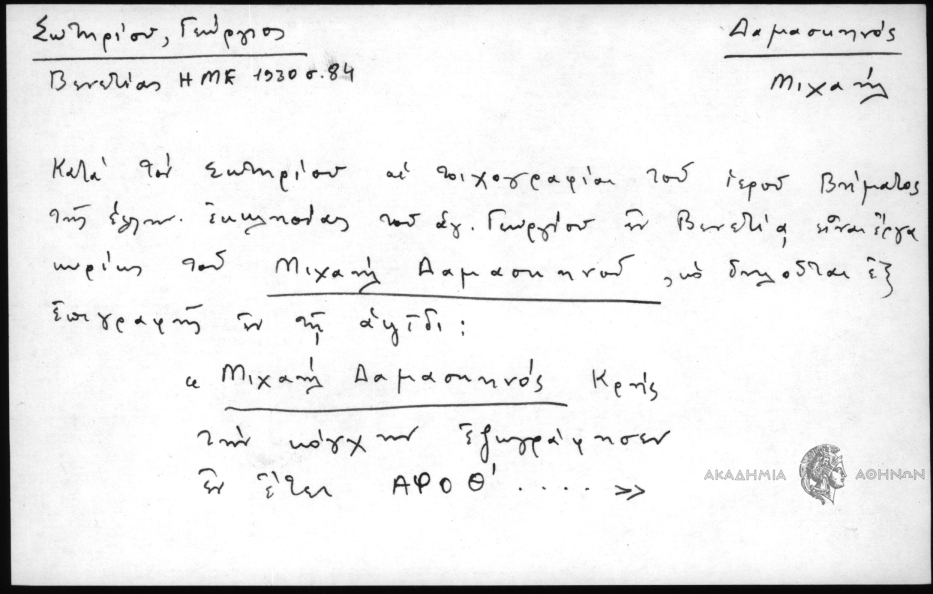 Σωτηρίου, Γεώργιος
Δαμασκηνός
Βενετίας ΗΜΕ 1930 σ. 84
Μιχαήλ
Κατά τόν Σωτηρίου αἱ τοιχογραφίαι τοῦ ἱεροῦ Βήματος
τῆς ἑλλην. ἐκκλησίας τοῦ ἁγ. Γεωργίου ἐν Βενετίᾳ εἶναι ἔργα
κυρίως τοῦ Μιχαήλ Δαμασκηνοῦ, ὡς δηλοῦται ἐξ
ἐπιγραφῆς ἐν τῇ ἁψῖδι:
« Μιχαήλ Δαμασκηνός Κρής
τήν κόγχην ἐζωγράφησεν
ἐν ἔτει ΑΦΟΘ́ .... »
ΑΚΑΔΗΜΙΑ ΑΘΗΝΩΝ